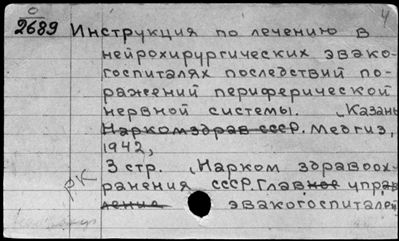 О 4
2689 Инструкция по лечению в
нейрохирургических эвако-
госпиталях последствий по-
ражений периферической
нервной системы. Казань
Наркомздрав СССР. Медгиз,
1942,
3 стр. (Нарком здравоох-
РК ранения СССР. Главное управ-
ление эвакогоспиталей